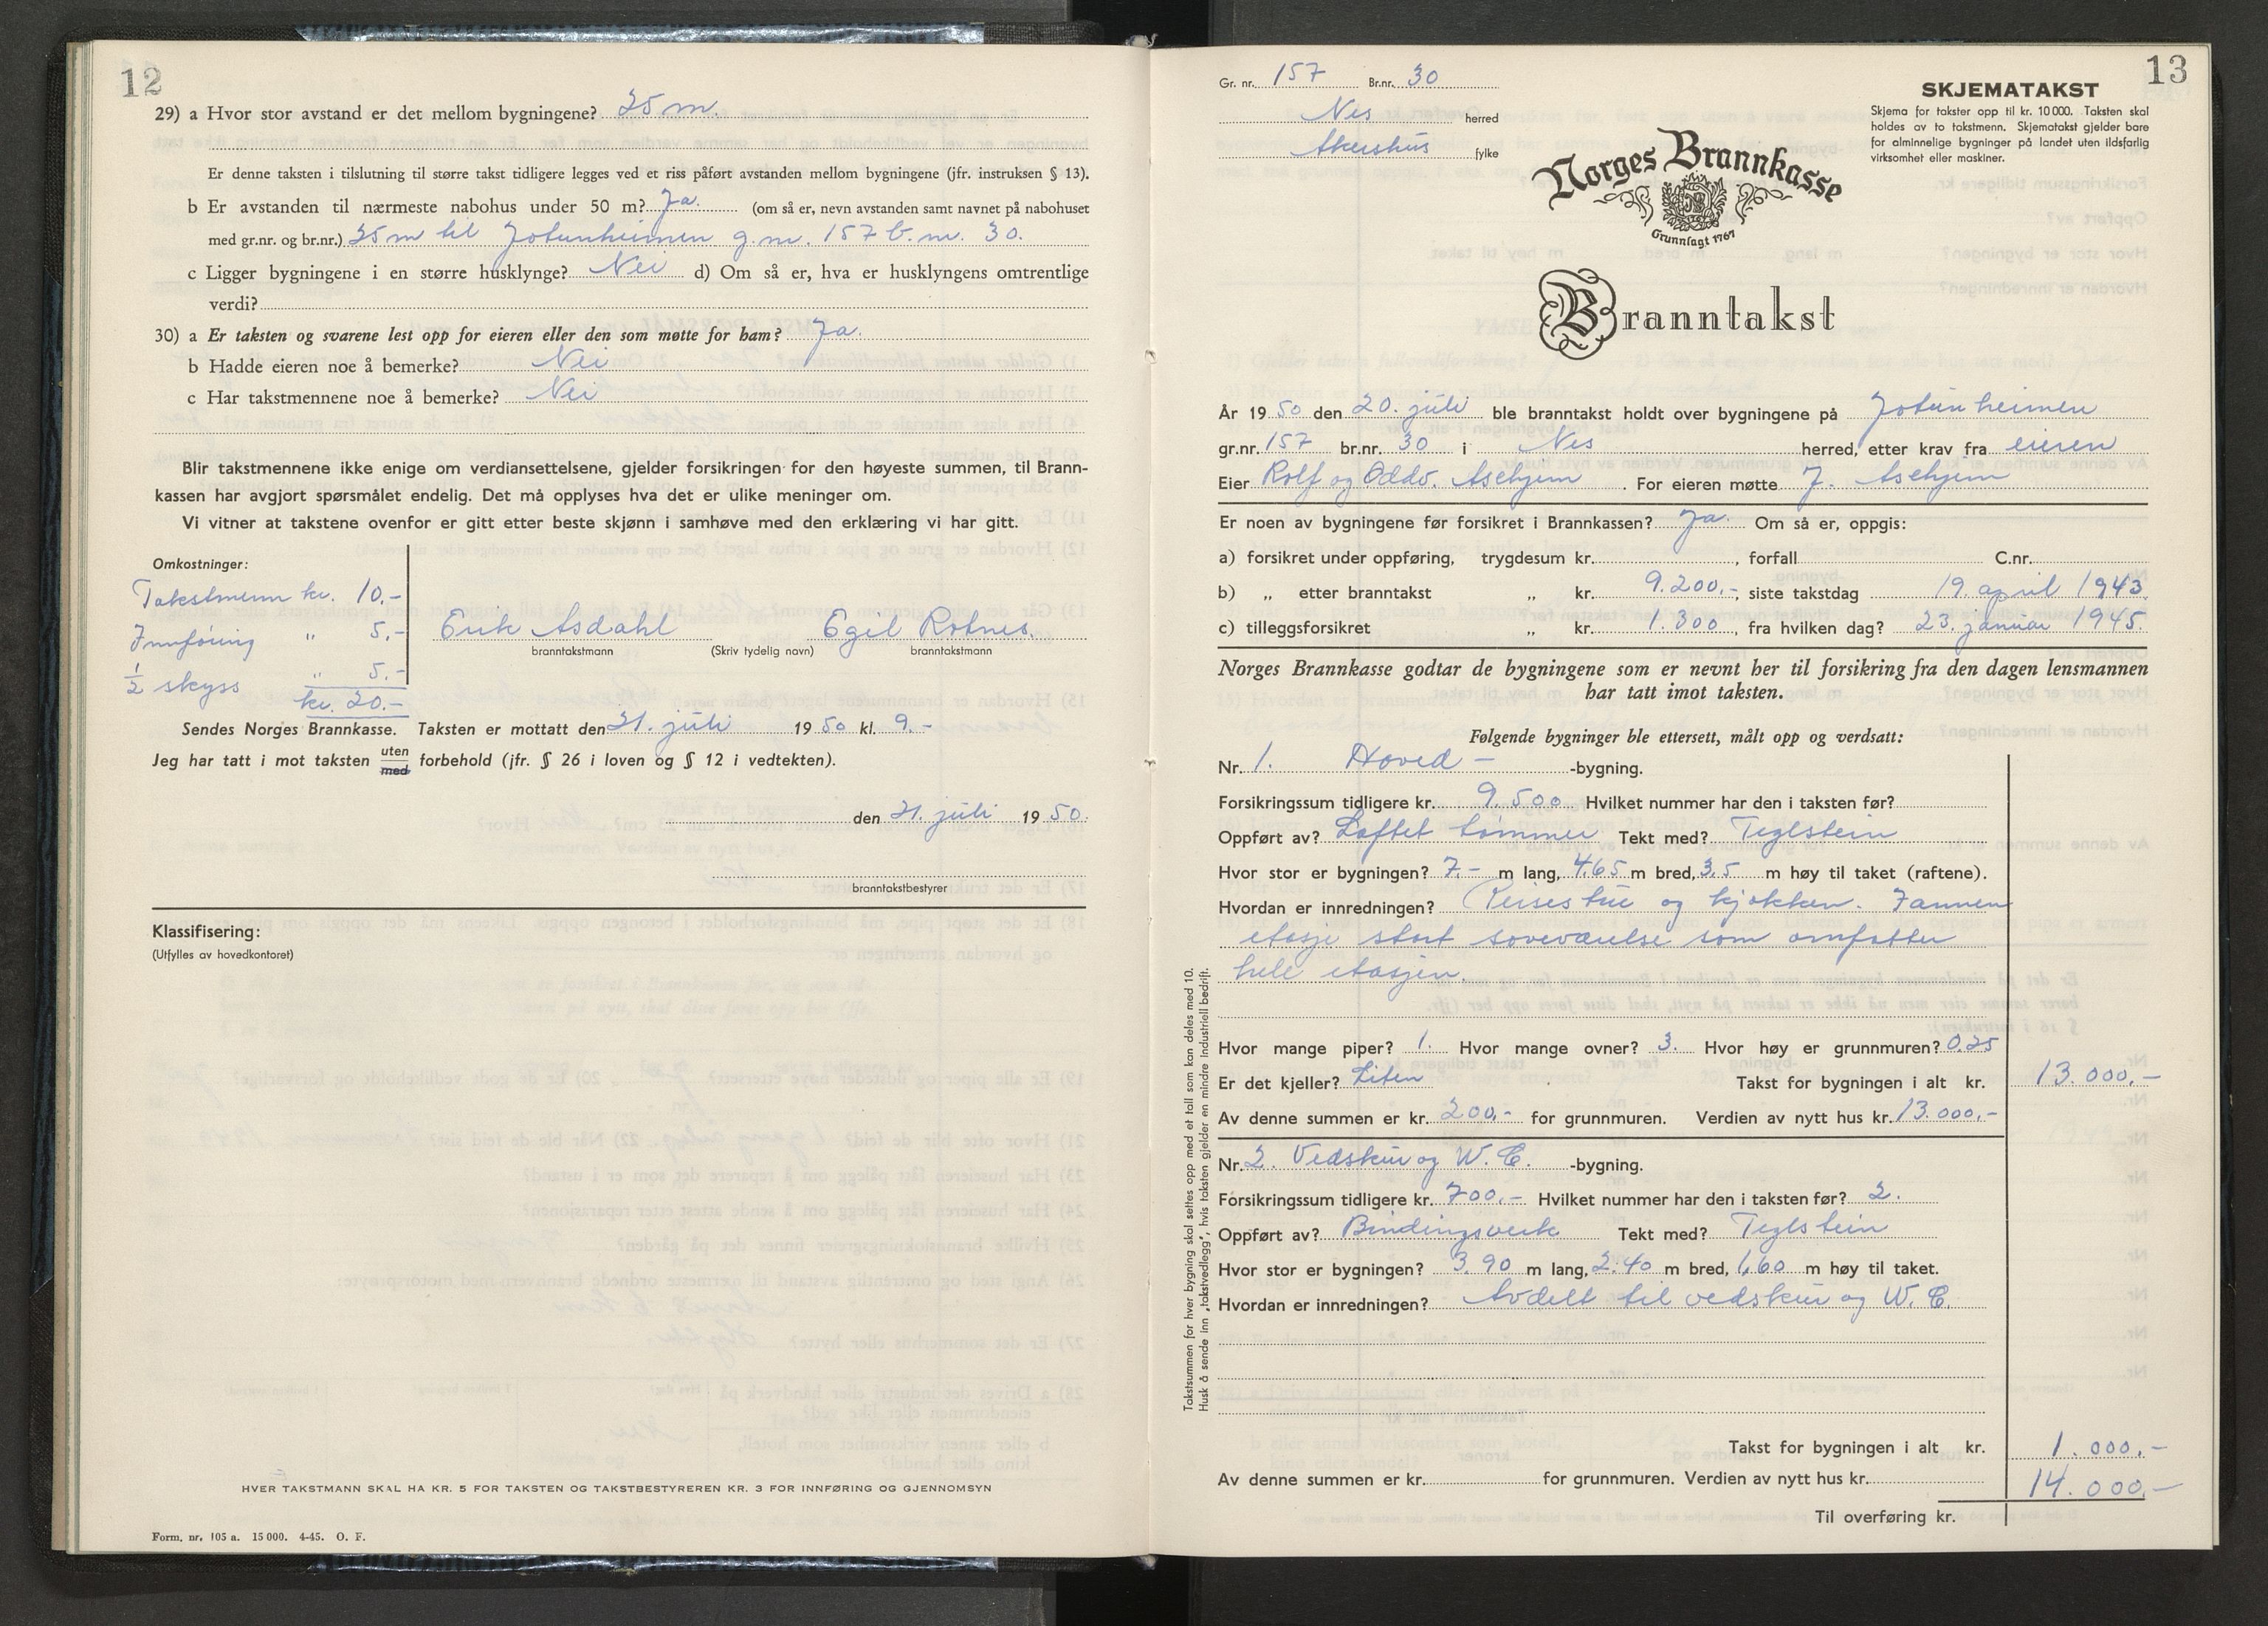 12
29) a Hvor stor avstand er det mellom bygningene? 25 m.
Er denne taksten i tilslutning til større takst tidligere legges ved et riss påført avstanden mellom bygningene (jfr. instruksen § 13).
b Er avstanden til nærmeste nabohus under 50 m? Ja. (om så er, nevn avstanden samt navnet på nabohuset
med gr.nr. og br.nr.) 25 m til Jotunheimen g.nr. 157 b.nr. 30.
c Ligger bygningene i en større husklynge? Nei d) Om så er, hva er husklyngens omtrentlige
verdi?
30) a Er taksten og svarene lest opp for eieren eller den som møtte for ham? Ja.
b Hadde eieren noe å bemerke? Nei
c Har takstmennene noe å bemerke? Nei
Blir takstmennene ikke enige om verdiansettelsene, gjelder forsikringen for den høyeste summen, til Brann-
kassen har avgjort spørsmålet endelig. Det må opplyses hva det er ulike meninger om.
Vi vitner at takstene ovenfor er gitt etter beste skjønn i samhøve med den erklæring vi har gitt.
Omkostninger:
Takstmenn kr. 10.-
Innføring " 5,-
½ skyss " 5.-
kr. 20.-
Erik Asdahl Egil Rotnes.
branntakstmann (Skriv tydelig navn) branntakstmann
Sendes Norges Brannkasse. Taksten er mottatt den 21. juli 1950 kl. 9.-
Jeg har tatt i mot taksten uten med forbehold (jfr. § 26 i loven og § 12 i vedtekten).
den 21. juli 1950.
branntakstbestyrer
Klassifisering:
(Utfylles av hovedkontoret)
HVER TAKSTMANN SKAL HA KR. 5 FOR TAKSTEN OG TAKSTBESTYREREN KR. 3 FOR INNFØRING OG GJENNOMSYN
Form. nr. 105 a. 15 000. 4-45. O. F.
13
Gr. nr. 157 Br.nr. 30
Nes herred
Akershus fylke
SKJEMATAKST
Skjema for takster opp til kr. 10 000. Taksten skal
holdes av to takstmenn. Skjematakst gjelder bare
for alminnelige bygninger på landet uten ildsfarlig
virksomhet eller maskiner.
Norges Brannkasse
Grunnlagt 1767
Branntakst
År 1950 den 20. juli ble branntakst holdt over bygningene på Jotunheimen
gr.nr. 157 br.nr. 30 i Nes herred, etter krav fra eieren
Eier Rolf og Oddv. Asehjem. For eieren møtte J. Asehjem
Er noen av bygningene før forsikret i Brannkassen? Ja. Om så er, oppgis:
a) forsikret under oppføring, trygdesum kr. , forfall C.nr.
b) „ etter branntakst „ kr. 9.200,-, siste takstdag 19. april 1943.
c) tilleggsforsikret „ kr. 1.300, fra hvilken dag? 23. januar 1945.
Norges Brannkasse godtar de bygningene som er nevnt her til forsikring fra den dagen lensmannen
har tatt imot taksten.
Følgende bygninger ble ettersett, målt opp og verdsatt:
Nr. 1. Hoved- -bygning.
Forsikringssum tidligere kr. 9.500 Hvilket nummer har den i taksten før?
Oppført av? Laftet tømmer Tekt med? Teglstein
Hvor stor er bygningen? 7.- m lang, 4.65 m bred, 3,5 m høy til taket (raftene).
Hvordan er innredningen? Peisestue og kjøkken. I annen
etasje stort soveværelse som omfatter
hele etasjen.
Hvor mange piper? 1. Hvor mange ovner? 3. Hvor høy er grunnmuren? 0.25
Er det kjeller? Liten Takst for bygningen i alt kr. 13.000,-
Av denne summen er kr. 200,- for grunnmuren. Verdien av nytt hus kr. 13.000,-
Nr. 2. Vedskur og W.C. -bygning.
Forsikringssum tidligere kr. 700,- Hvilket nummer har den i taksten før? 2.
Oppført av? Bindingsverk Tekt med? Teglstein
Hvor stor er bygningen? 3.90 m lang, 2.40 m bred, 1,60 m høy til taket.
Hvordan er innredningen? Avdelt til vedskur og W.C.
Takst for bygningen i alt kr. 1.000,-
Av denne summen er kr. for grunnmuren. Verdien av nytt hus kr.
14.000,-
Til overføring kr.
Takstsummen for hver bygning skal settes opp med et tall som kan deles med 10.
Husk å sende inn „takstvedlegg", hvis taksten gjelder en mindre industriell bedrift.